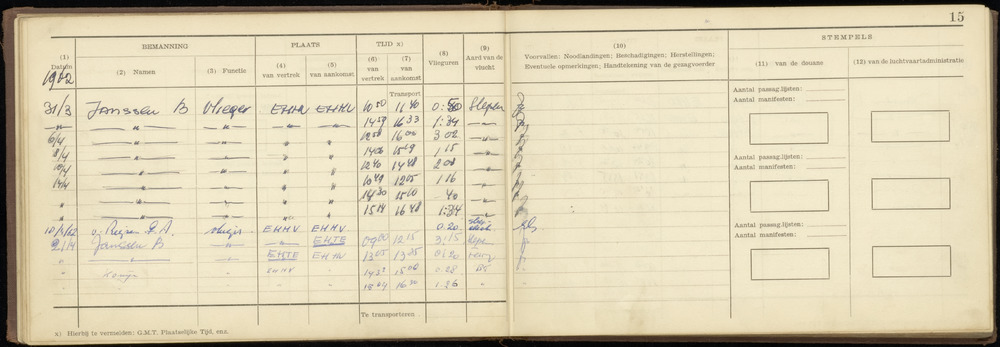 15
BEMANNING PLAATS TIJD x) STEMPELS
(1) Datum (2) Namen (3) Functie (4) van vertrek (5) van aankomst (6) van vertrek (7) van aankomst (8) Vlieguren (9) Aard van de vlucht (10) Voorvallen; Noodlandingen; Beschadigingen; Herstellingen; Eventuele opmerkingen; Handtekening van de gezagvoerder (11) van de douane (12) van de luchtvaartadministratie
Transport
31/3 Janssen B Vlieger EHHV EHHV 10 50 11 40 0:50 Slepen
—"— —"— " " " 14 59 16 33 1:34 —"—
6/4 —"— " " " 12 58 16 00 3 02 "
8/4 —"— " " " 1 15 "
10/4 —"— " " " 12 40 14 48 2 08 "
14/4 —"— " " " 10 49 12 05 1 16 "
" —"— " " " 14 20 15 00 40 "
" —"— " " " 15 14 16 48 1:34 "
EHHV EHHV 0.20
21/4 Janssen B " " EHTE 09 00 12 15 3:15 Slepen
" " " EHTE EHHV 13 05 13 25 0:20
" " EHHV 15 00 0.28
" 16 30 1.26 "
Te transporteren
Aantal passag.lijsten:
Aantal manifesten:
Aantal passag.lijsten:
Aantal manifesten:
Aantal passag.lijsten:
Aantal manifesten:
x) Hierbij te vermelden: G.M.T. Plaatselijke Tijd, enz.